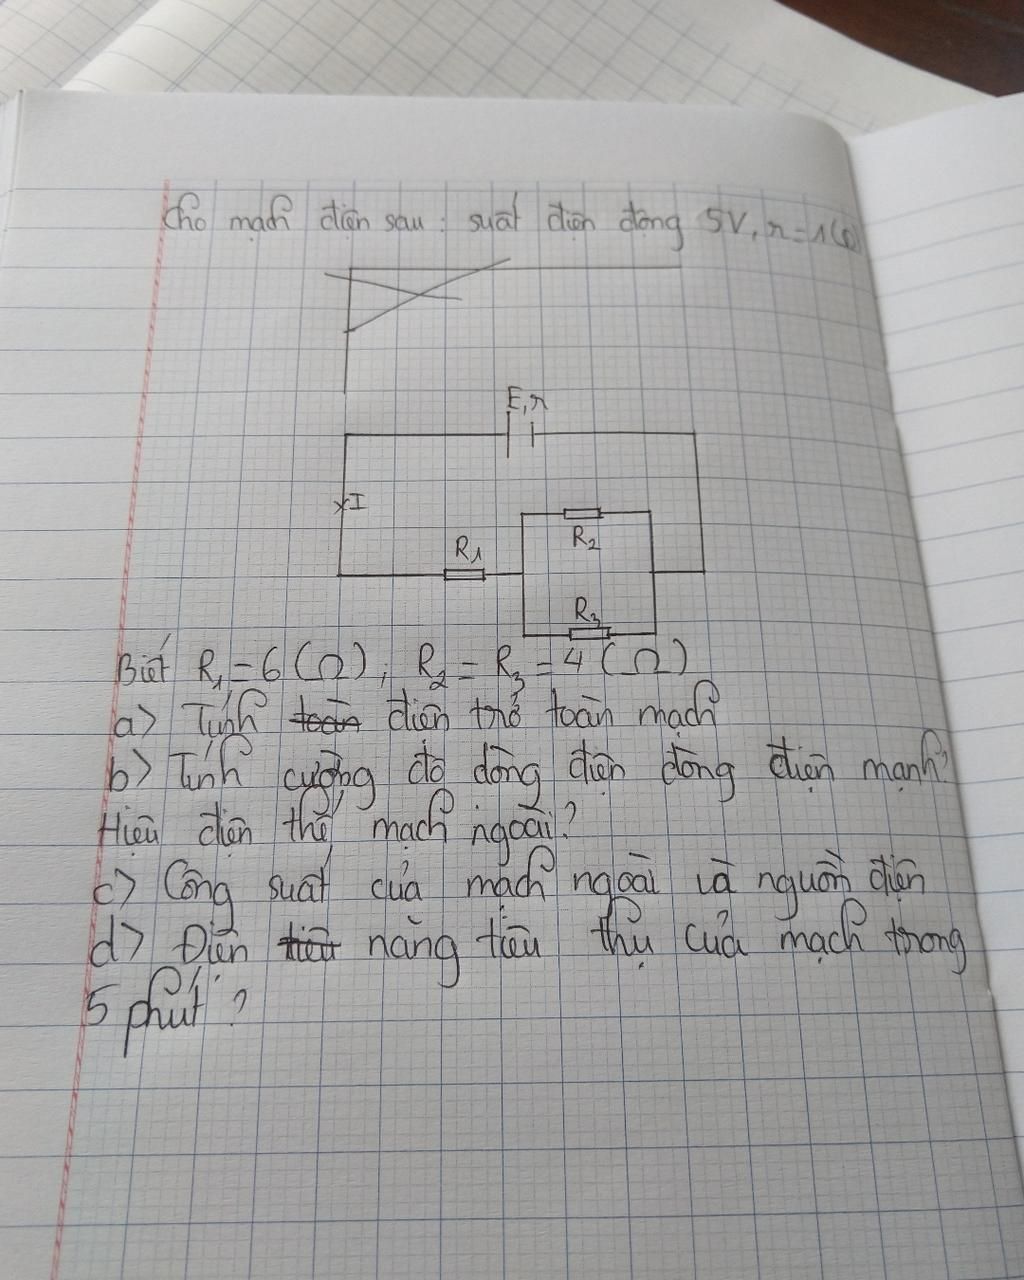 Cho mạch điện sau: suất điện động 5V, r=1(Ω)
E,r
I
R1
R2
R3
Biết R1=6(Ω); R2=R3=4(Ω)
a> Tính điện trở toàn mạch
b> Tính cường độ dòng điện dòng điện mạnh?
Hiệu điện thế mạch ngoài?
c> Công suất của mạch ngoài và nguồn điện
d> Điện năng tiêu thụ của mạch trong
5 phút?